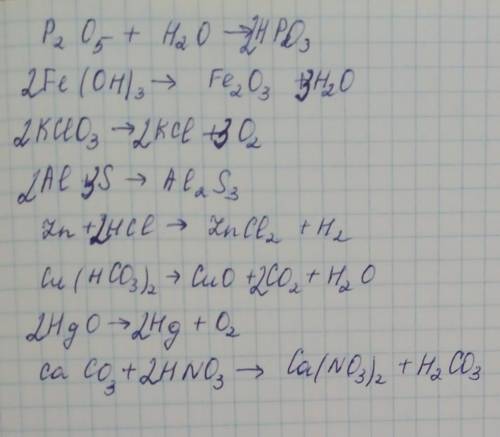 P₂O₅ + H₂O → 2HPO₃
2Fe(OH)₃ → Fe₂O₃ + 3H₂O
2KClO₃ → 2KCl + 3O₂
2Al 3S → Al₂S₃
Zn + 2HCl → ZnCl₂ + H₂
Cu(HCO₃)₂ → CuO + 2CO₂ + H₂O
2HgO → 2Hg + O₂
CaCO₃ + 2HNO₃ → Ca(NO₃)₂ + H₂CO₃